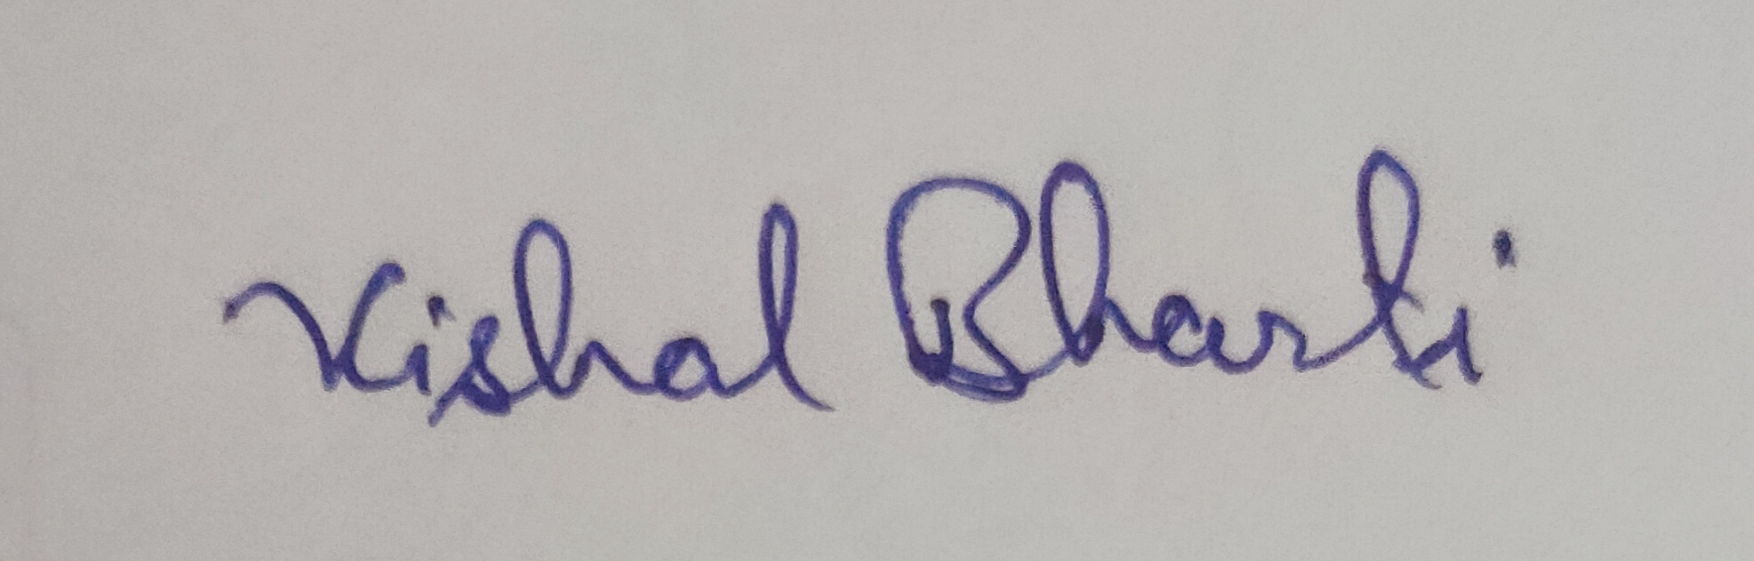 Vishal Bharti